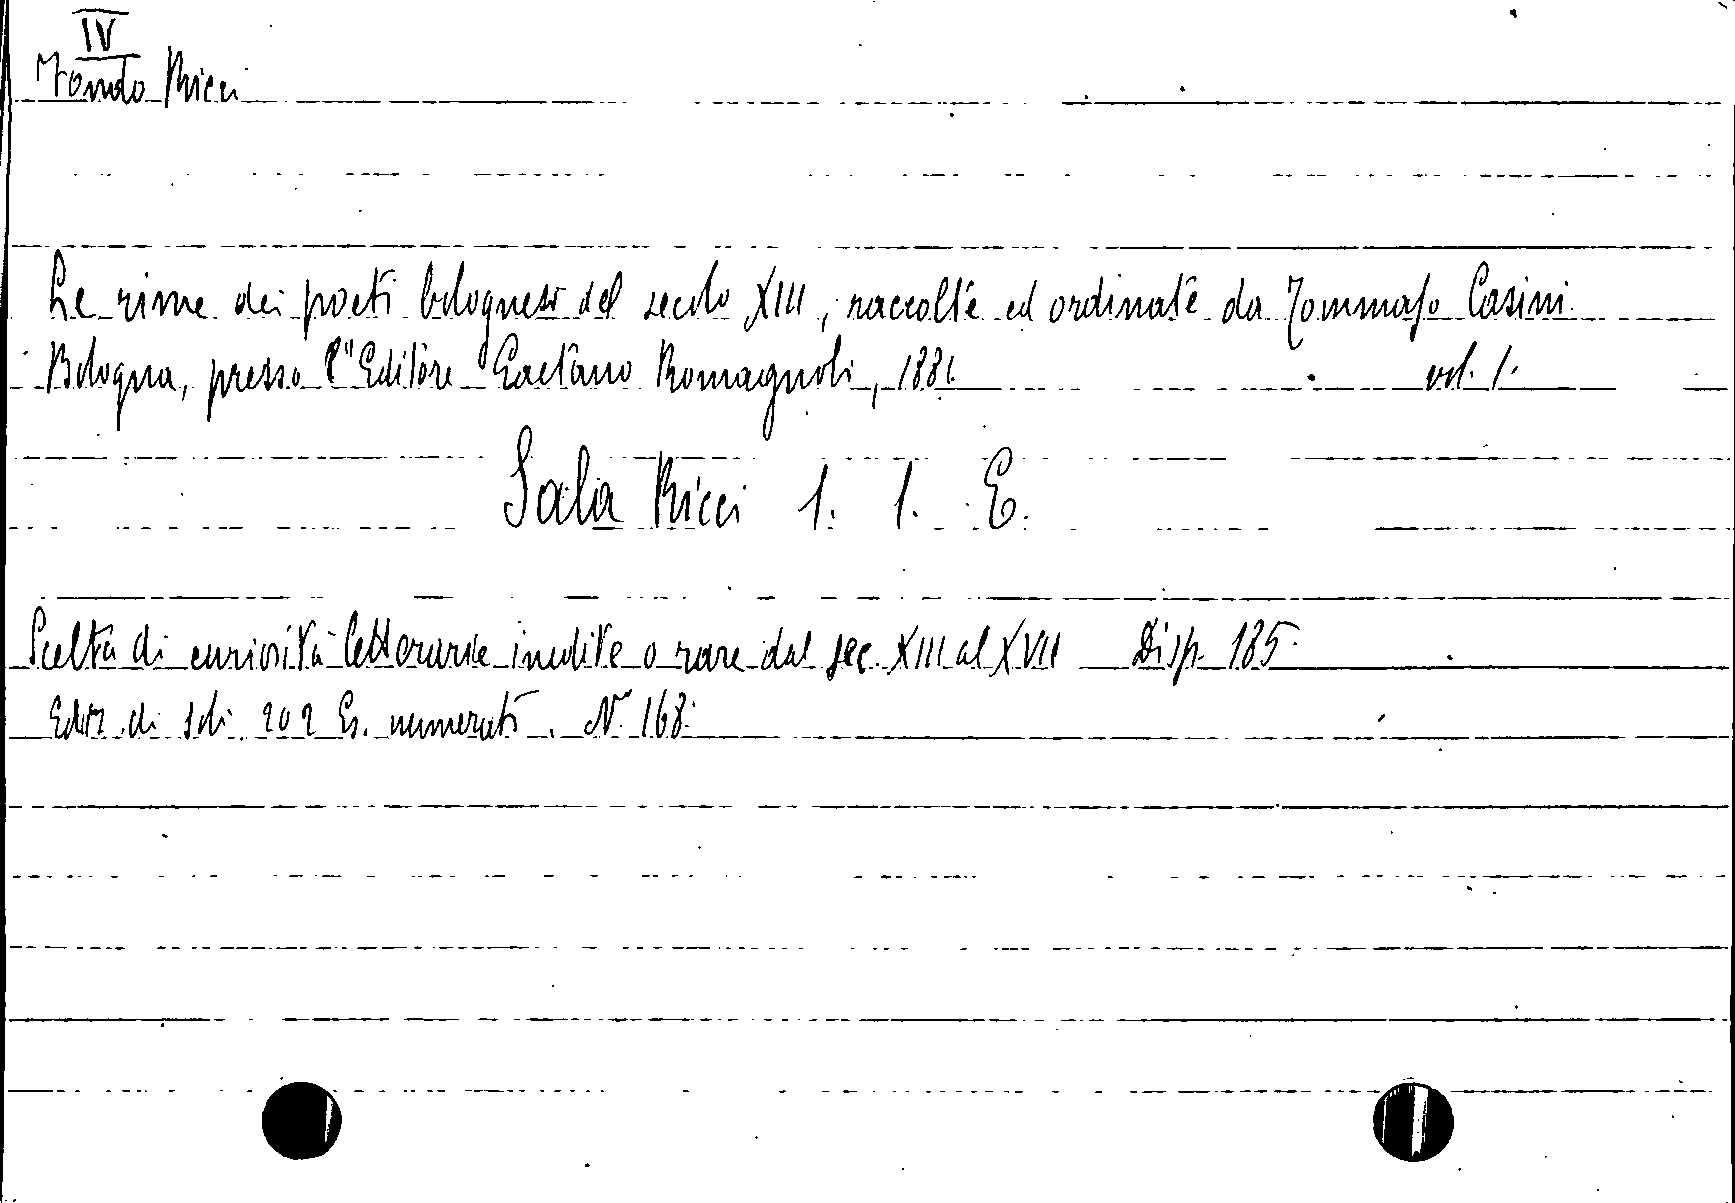 IV
Fondo Ricci
Le rime dei poeti bolognesi del secolo XIII, raccolte ed ordinate da Tommaso Casini.
Bologna, presso l'Editore Gaetano Romagnoli, 1881. vol. 1.
Sala Ricci 1. 1. E.
Scelta di curiosità letterarie inedite o rare dal sec. XIII al XVII Disp. 185.
Ediz. di soli 202 Es. numerati. N. 168.